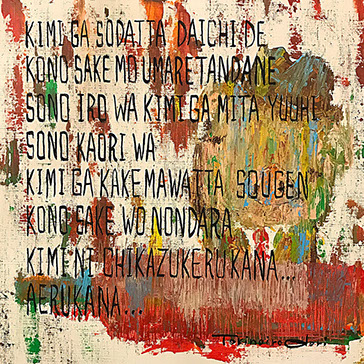 KIMI GA SODATTA DAICHI DE
KONO SAKE MO UMARETANDANE
SONO IRO WA KIMI GA MITA YUUHI
SONO KAORI WA
KIMI GA KAKEMAWATTA SOUGEN
KONO SAKE WO NONDARA
KIMI NI CHIKAZUKERU KANA...
AERUKANA...